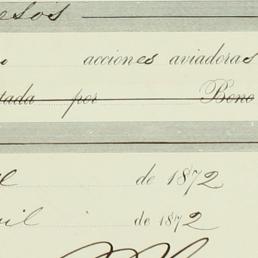 esos
o acciones aviadoras
tada por Bono
il de 1872
ril de 1872